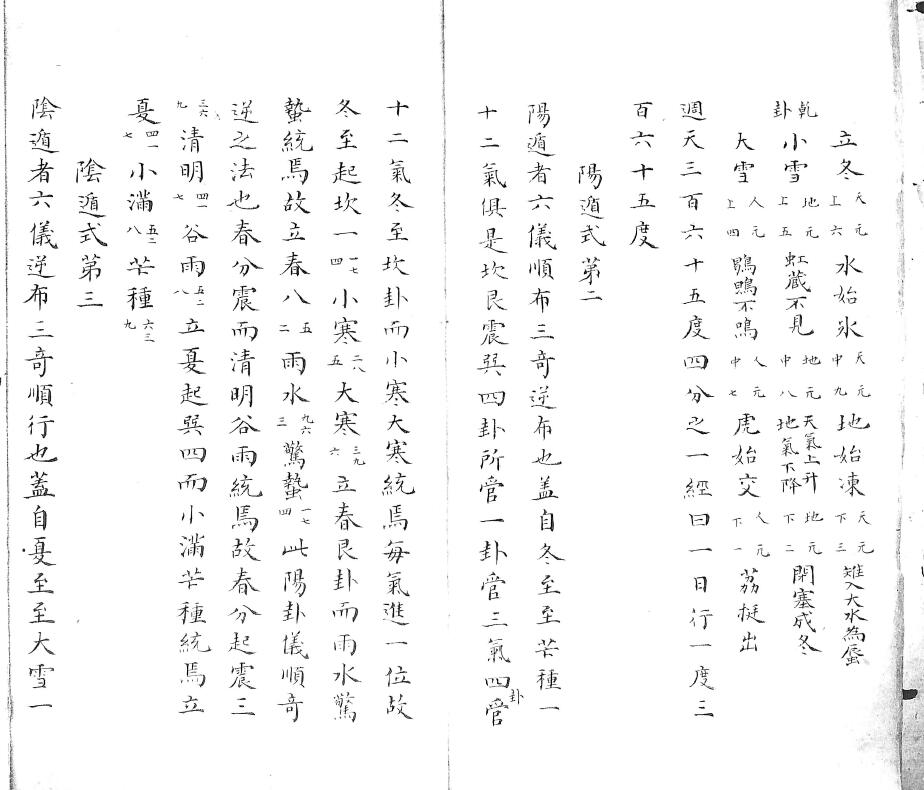 立冬 天元上六 水始氷 天元中九 地始凍 天元下三 雉入大水為蜃
乾卦 小雪 地元上五 虹藏不見 地元中八 天氣上升地氣下降 地元下二 閉塞成冬
大雪 人元上四 鶡鴠不鳴 人元中七 虎始交 人元下一 荔挺出
週天三百六十五度四分之一經曰一日行一度三
百六十五度
陽遁式第二
陽遁者六儀順布三竒逆布也盖自冬至至芒種一
十二氣俱是坎艮震巽四卦所管一卦管三氣四卦管
十二氣冬至坎卦而小寒大寒統焉每氣進一位故
冬至起坎一 一七四 小寒 二八五 大寒 三九六 立春艮卦而雨水驚
蟄統焉故立春八 五二 雨水 九六三 驚蟄 一七四 此陽卦儀順竒
逆之法也春分震而清明谷雨統焉故春分起震三
三六九 清明 四一七 谷雨 五二八 立夏起巽四而小滿芒種統焉立
夏 四一七 小滿 五二八 芒種 六三九
陰遁式第三
陰遁者六儀逆布三竒順行也蓋自夏至至大雪一